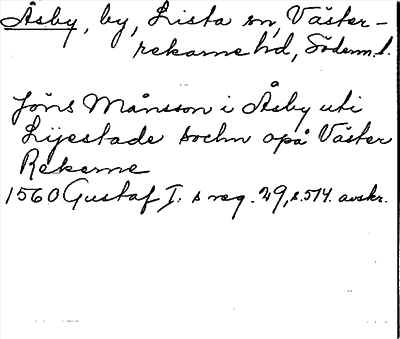 Åsby, by, Lista sn, Väster-
rekarne hd, Söderm. l.
Jöns Månsson i Åsby uti
Lijestade sochn opå Väster
Rekerne
1560 Gustaf I. s reg. 29, s. 514. avskr.